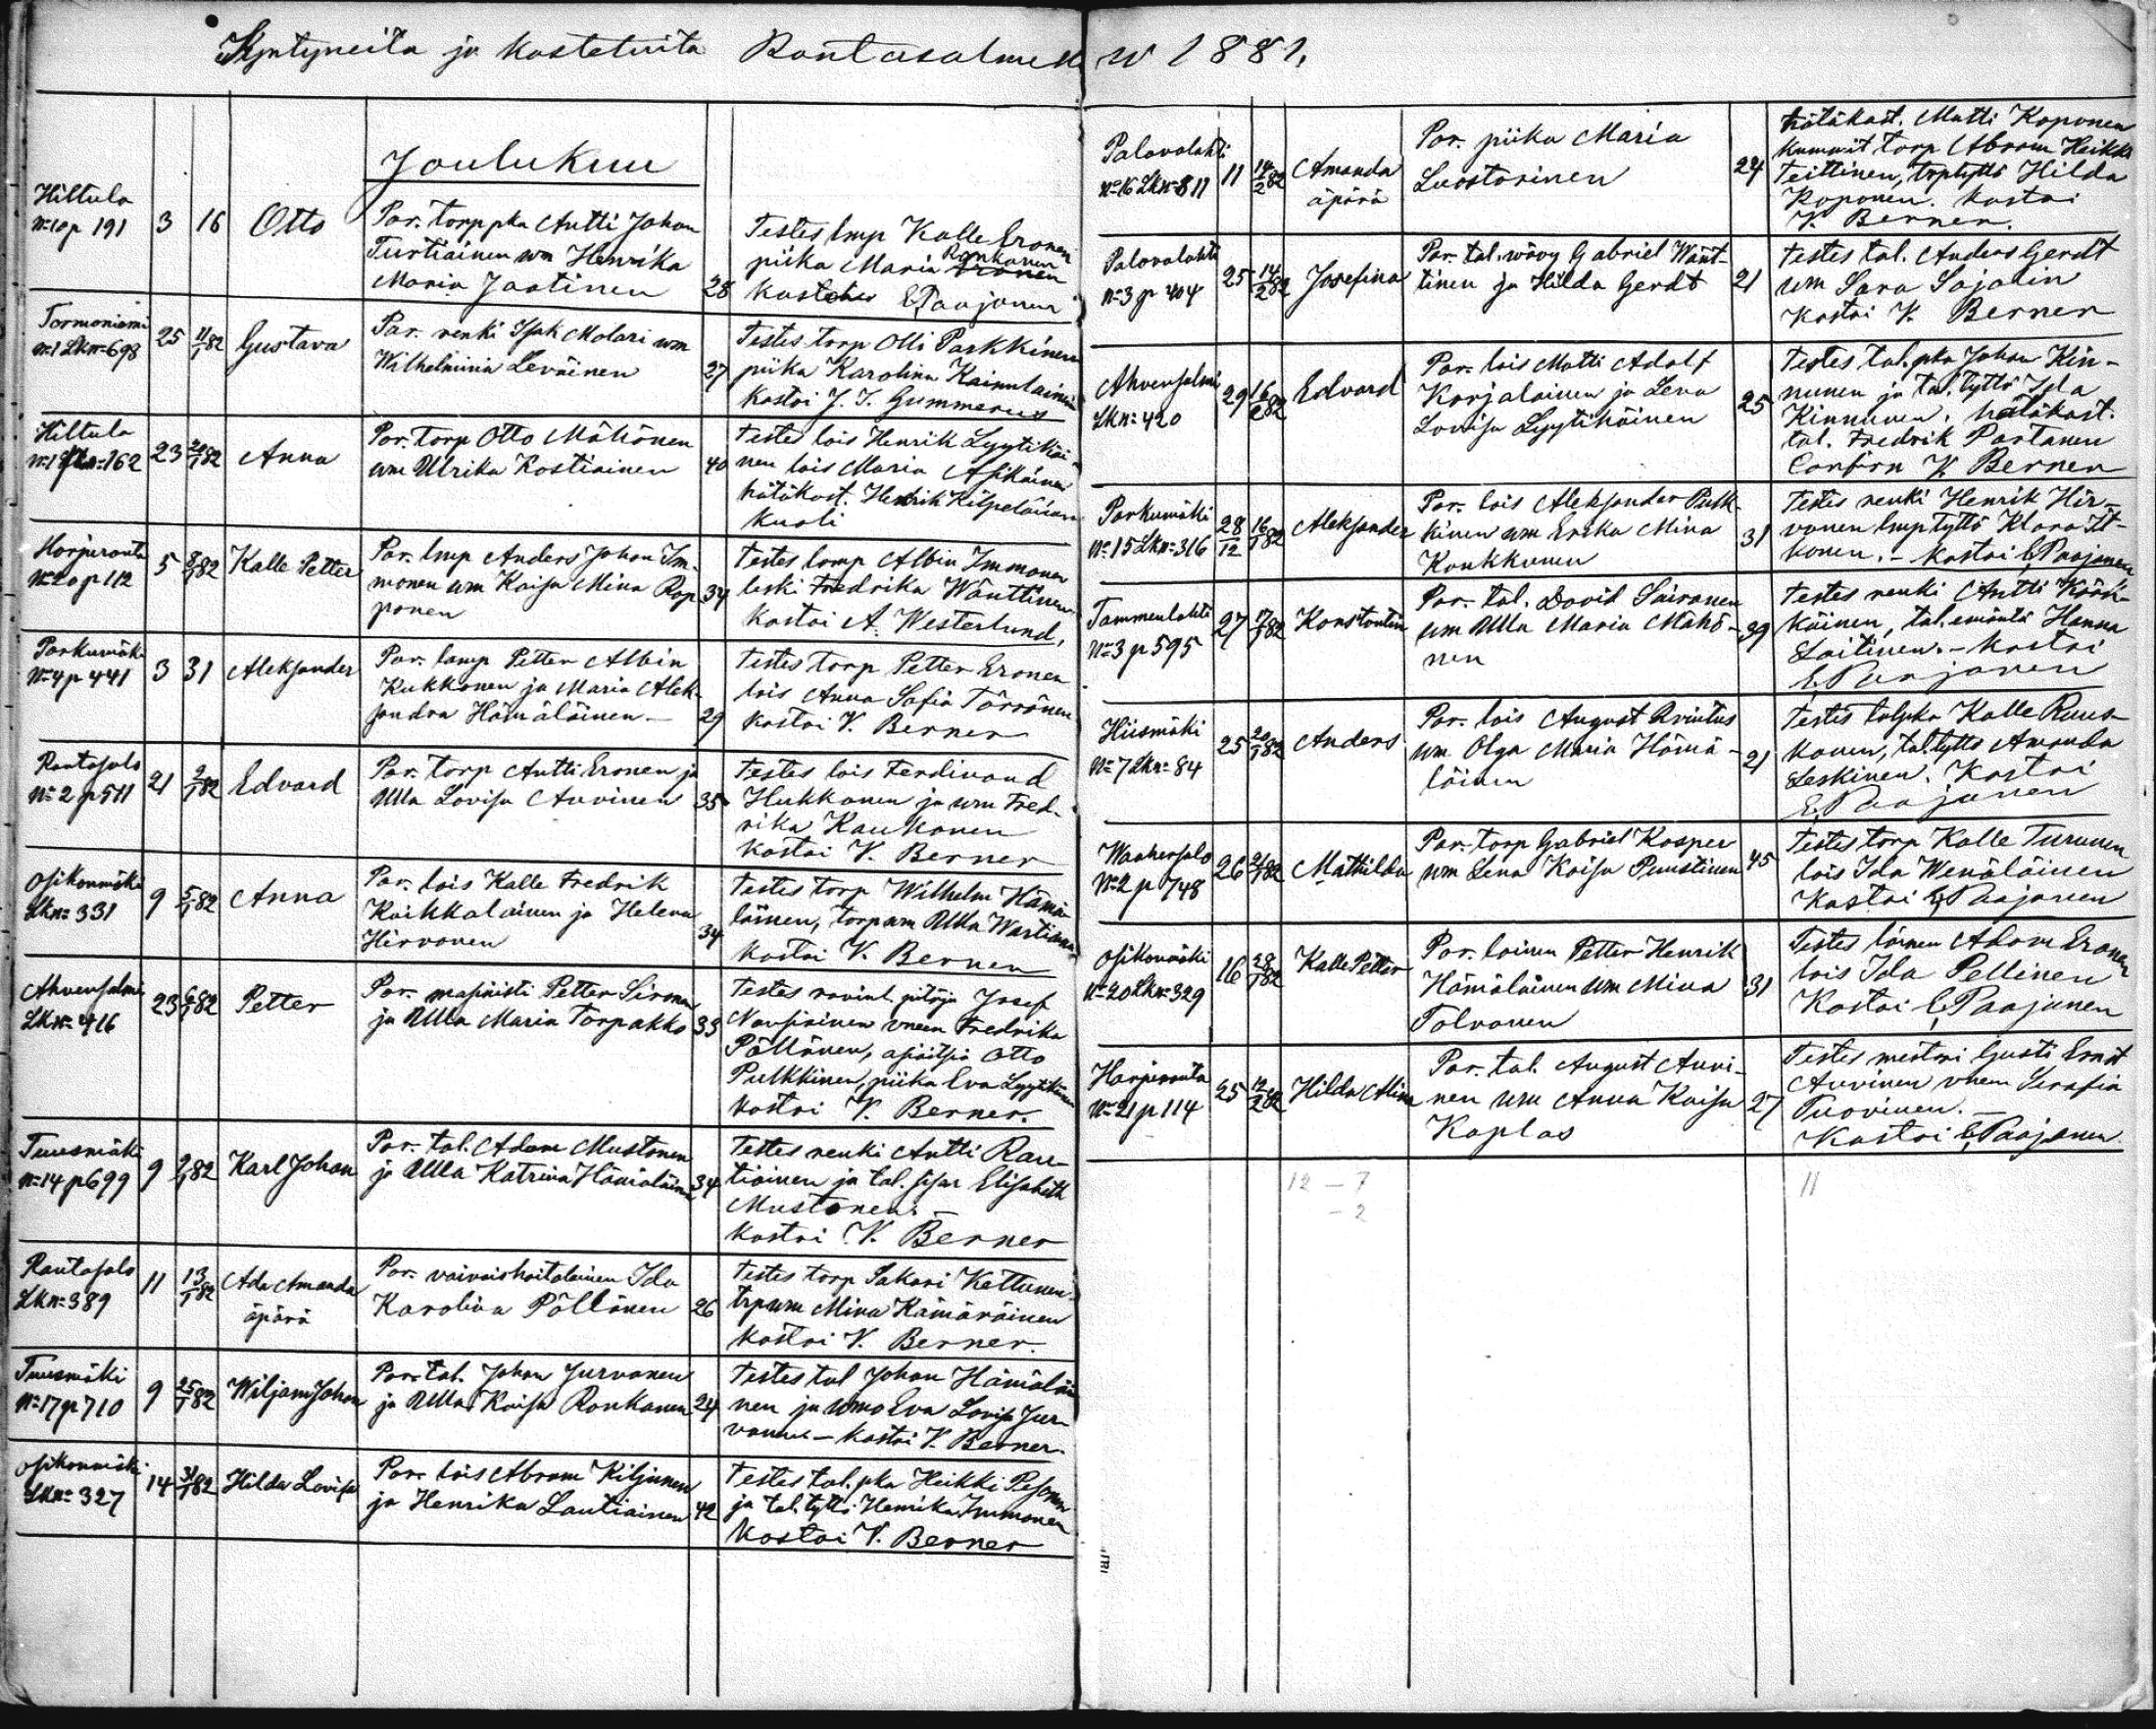 Syntyneitä ja kastetuita Rantasalmella w 1881.
Joulukuu
Hiltula
No 10 p 191
3 16 Otto
Par. torp pka Antti Johan
Turtiainen wm Henrika
Maria Jaatinen 28
Testes lmp Kalle Eronen
piika Maria Ronkanen
E Paajanen
Tormoniemi
No 1 Lkn: 698
25 11/1 82 Gustava
Par. renki Isak Molari wm
Wilhelmiina Leväinen 27
Testes torp Olli Parkkinen
piika Karolina Kainulainen
kastoi J. I. Gummerus
Hiltula
162
23 20/1 82 Anna
Par. torp Otto Mähönen
wm Ulrika Kostiainen 40
Testes lois Henrik Lyytikäi-
nen lois Maria Asikainen
hätäkast. Henrik Kilpeläinen
kuoli
Harjuranta
No 20 p 112
5 8/1 82 Kalle Petter
Par. lmp Anders Johan Im-
monen wm Kaisa Mina Rop- 34
ponen
Testes lamp Albin Immonen
leski Fredrika Wänttinen
kastoi A. Westerlund,
Parkumäki
No 4 p 441
3 31 Aleksander
Par. lamp Petter Albin
Kukkonen ja Maria Alek-
sandra Hämäläinen 29
Testes torp Petter Eronen
lois Anna Sofia Törrönen
kastoi V. Berner
Rantasalo
No 2 p 511
21 2/1 82 Edvard
Par. torp Antti Eronen ja
Ulla Lovisa Auvinen 35
Testes lois Ferdinand
Hukkanen ja wm Fred-
rika Kaukonen
kastoi V. Berner
Osikonmäki
Lkn: 331
9 5/1 82 Anna
Par. lois Kalle Fredrik
Kaikkalainen ja Helena
Hirvonen 34
Testes torp Wilhelm Hämä-
läinen, torp wm Ulla Wartiainen
kastoi V. Berner
Ahvensalmi
Lkn: 416
23 6/1 82 Petter
Par. masinisti Petter Sironen
ja Ulla Maria Torpakko 33
Testes ravint. pitäjä Josef
Nousiainen vmen Fredrika
Pöllänen, asioitsia Otto
Pulkkinen, piika Eva Lyytikäinen
kastoi V. Berner.
Tuusmäki
No 14 p 699
9 7/1 82 Karl Johan
Par. tal. Adam Mustonen
ja Ulla Katrina Hämäläinen 34
Testes renki Antti Rau-
tiainen ja tal. sisar Elisabeth
Mustonen.
kastoi V. Berner
Rantasalo
Lkn: 389
11 13/1 82 Ada Amanda
äpärä
Par. vaivaishoitolainen Ida
Karolina Pöllänen 26
Testes torp Sakari Kettunen
trp wm Mina Kämäräinen
kastoi V. Berner.
Tuusmäki
No 17 p 710
9 25/1 82 Wiljam Johan
Par. tal. Johan Jurvanen
ja Ulla Kaisa Ronkanen 24
Testes tal Johan Hämäläi-
nen ja wmo Eva Lovisa Jur-
vanen – kastoi V. Berner.
Osikonmäki
Lkn: 327
14 31/1 82 Hilda Lovisa
Par. lois Abram Kiljunen
ja Henrika Lautiainen 42
Testes tal. pka Heikki Pesonen
ja tal. tyttö Henrika Immonen
kastoi V. Berner
Palovalahti
No 16 Lkn: 811
11 14/2 82 Amanda
äpärä
Par. piika Maria
Luostarinen 24
hätäkast. Matti Koponen
kummit torp Abram Heikki
Teittinen, trp tyttö Hilda
Koponen. kastoi
V. Berner.
Palovalahti
No 3 p 404
25 14/2 82 Josefina
Par. tal. wävy Gabriel Wänt-
tinen ja Hilda Gerdt 21
Testes tal. Anders Gerdt
wm Sara Sajalin
kastoi V. Berner
Ahvensalmi
Lkn: 420
29 16/2 82 Edvard
Par. lois Matti Adolf
Karjalainen ja Lena
Lovisa Lyytikäinen 25
Testes tal. pka Johan Kin-
nunen ja tal. tyttö Ida
Kinnunen, hätäkast.
tal. Fredrik Partanen
Confirm V. Berner
Parkumäki
No 15 Lkn: 316
28/12 16/1 82 Aleksander
Par. lois Aleksander Pulk-
kinen wm Erika Mina 31
Kaukkunen
Testes renki Henrik Hir-
vonen lmp tyttö Klara It-
konen. – kastoi E Paajanen
Tammenlahti
No 3 p 595
27 17/1 82 Konstantin
Par. tal. David Sairanen
wm Ulla Maria Mähö- 39
nen
Testes renki Antti Kääk-
käinen, tal. emäntä Hanna
Laitinen. – kastoi
E. Paajanen
Hiismäki
No 7 Lkn: 84
25 20/1 82 Anders
Par. lois August Avintus
wm Olga Maria Hämä- 21
läinen
Testes tal pka Kalle Ruus-
konen, tal. tyttö Amanda
Leskinen. Kastoi
E. Paajanen
Waahersalo
No 2 p 748
26 21/1 82 Mathilda
Par. torp Gabriel Kasper
wm Lena Kaisa Puustinen 45
Testes torp Kalle Turunen
lois Ida Wenäläinen
Kastoi E Paajanen
Osikonmäki
No 20 Lkn: 329
16 28/1 82 Kalle Petter
Par. loinen Petter Henrik
Hämäläinen wm Mina 31
Tolvanen
Testes loinen Adam Eronen
lois Ida Pellinen
Kastoi E. Paajanen
Harjuranta
No 21 p 114
25 12/2 82 Hilda Alina
Par. tal. August Auvi-
nen wm Anna Kaisa 27
Kaplas
Testes mestari Gusti Ernst
Auvinen vmen Serafia
Tuovinen. –
Kastoi E. Paajanen
12 – 7
– 2
11